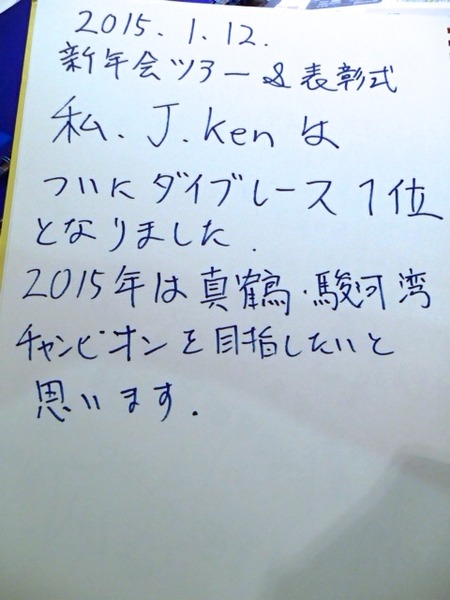 2015.1.12.
新年会ツアー&表彰式
私、J.Kenは
ついにダイブレース1位
となりました.
2015年は真鶴・駿河湾
チャンピオンを目指したいと
思います.